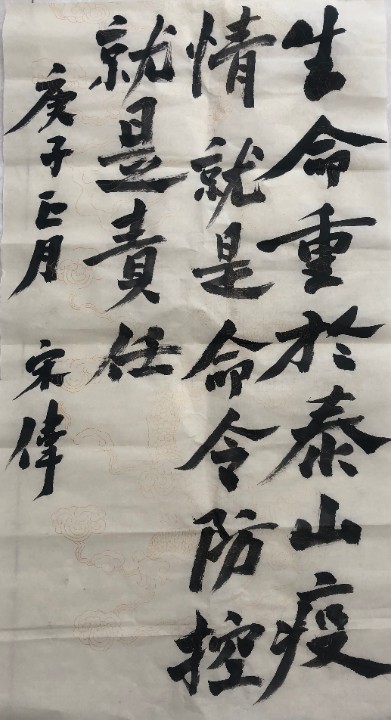 生命重於泰山疫
情就是命令防控
就是責任
庚子正月 宋偉